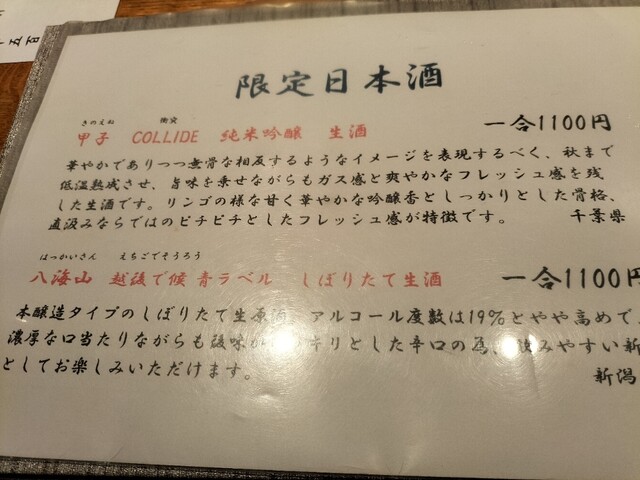 五百
限定日本酒
きのえね 衝突
甲子 COLLIDE 純米吟醸 生酒 一合1100円
華やかでありつつ無骨な相反するようなイメージを表現するべく、秋まで
低温熟成させ、旨味を乗せながらもガス感と爽やかなフレッシュ感を残
した生酒です。リンゴの様な甘く華やかな吟醸香としっかりとした骨格、
直汲みならではのピチピチとしたフレッシュ感が特徴です。 千葉県
はっかいさん えちごでそうろう
八海山 越後で候 青ラベル しぼりたて生酒 一合1100円
本醸造タイプのしぼりたて生原酒 アルコール度数は19%とやや高めで、
濃厚な口当たりながらも後味が キリとした辛口の為、飲みやすい新
としてお楽しみいただけます。 新潟